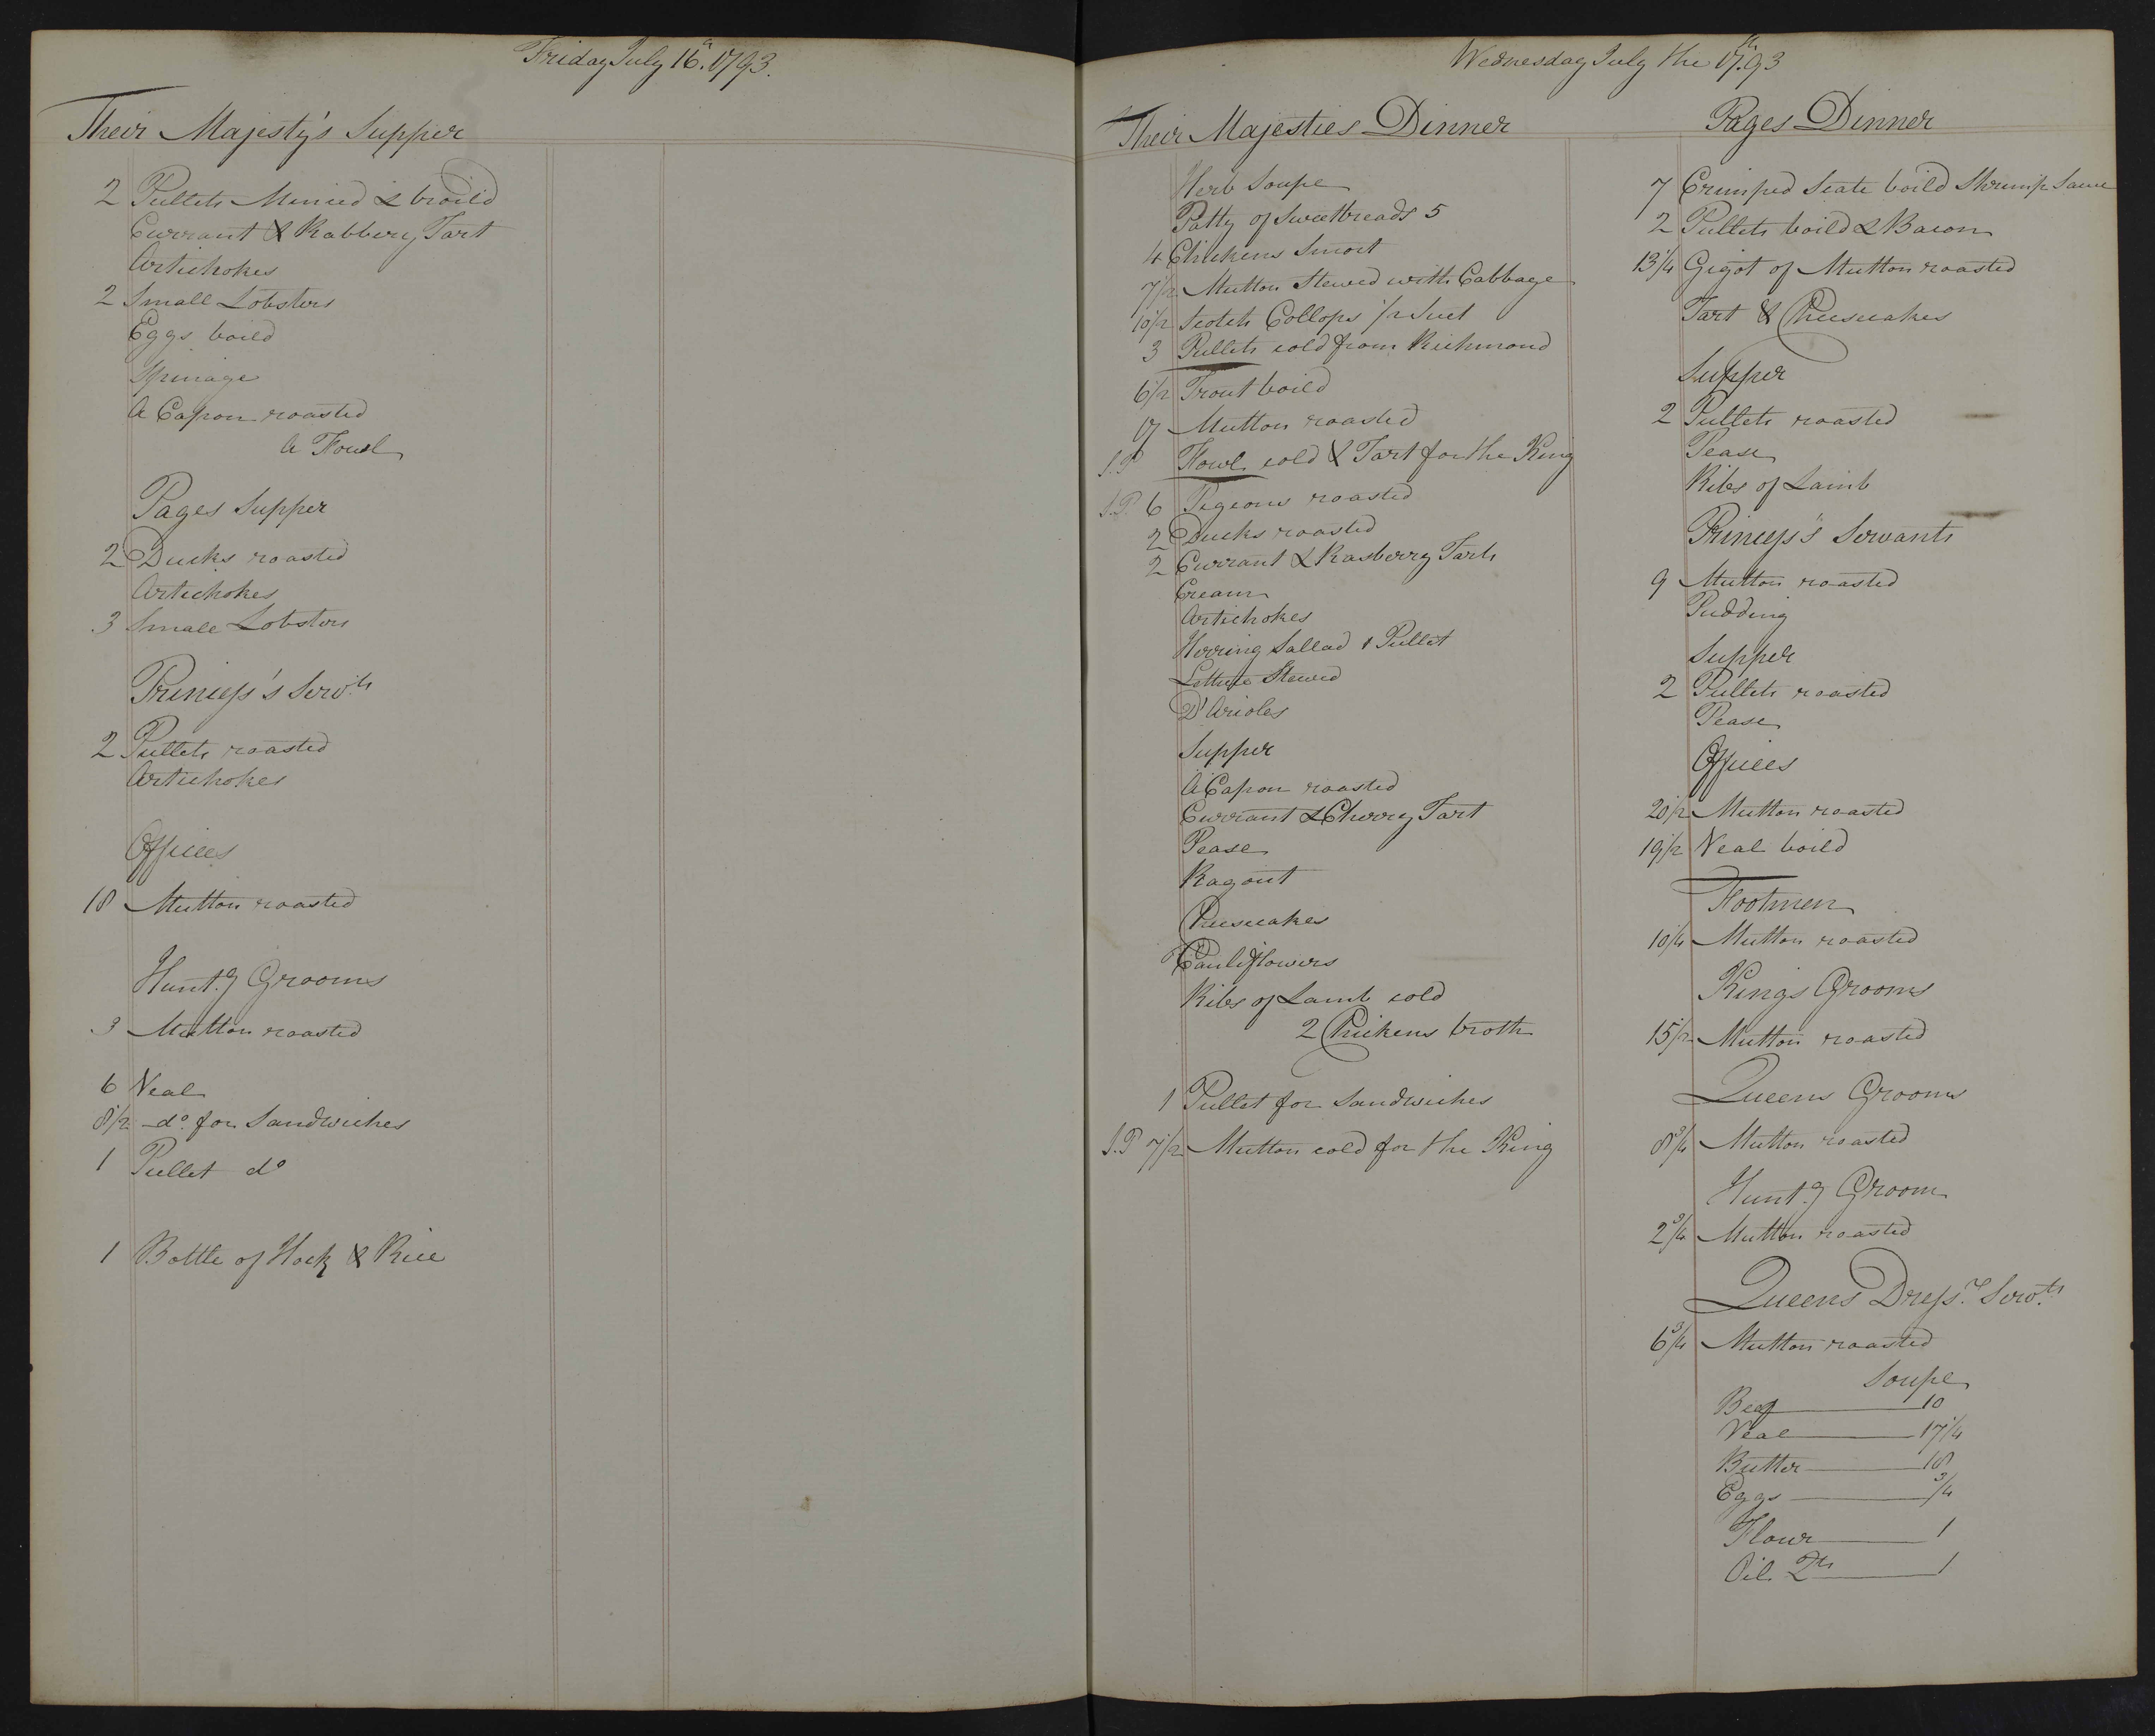 Friday July 16th. 1793.
Their Majesty's Supper
2 Pullets Minced & broild
Currant & Rabbery Tart
Artichokes
2 Small Lobsters
Eggs boild
Spinage
A Capon roasted
A Fowl
Pages Supper
2 Ducks roasted
Artichokes
3 Small Lobsters
Princess's Servts
2 Pullets roasted
Artichokes
Offices
18 Mutton roasted
Hunt.g Grooms
3 Mutton roasted
6 Veal
8 1/2 do for Sandwiches
1 Pullet do
1 Bottle of Hock & Rice
Wednesday July the 17th. 93
Their Majesties Dinner
Herb Soupe
Patty of Sweetbreads 5
4 Chickens Smort
7 1/2 Mutton Stewed with Cabbage
10 1/2 Scotch Collops 1/2 Suet
3 Pullets cold from Richmond
6 1/2 Trout boild
17 Mutton roasted
S.P Fowl cold & Tart for the King
S.P. 6 Pigeons roasted
2 Ducks roasted
2 Currant & Rasberry Tarts
Cream
Artichokes
Herring Sallad 1 Pullet
Lettuce Stewed
D'Arioles
Supper
A Capon roasted
Currant & Cherry Tart
Pease
Ragout
Cheesecakes
Cauliflowers
Ribs of Lamb cold
2 Chickens broth
1 Pullet for Sandwiches
S.P 7 1/2 Mutton cold for the King
Pages Dinner
7 Crimped Scate boild Shrimp Sauce
2 Pullets boild & Bacon
13 1/4 Gigot of Mutton roasted
Tart & Cheesecakes
Supper
2 Pullets roasted
Pease
Ribs of Lamb
Princess's Servants
9 Mutton roasted
Pudding
Supper
2 Pullets roasted
Pease
Offices
20 1/2 Mutton roasted
19 1/2 Veal boild
Footmen
10 1/4 Mutton roasted
Kings Grooms
15 1/2 Mutton roasted
Queens Grooms
8 3/4 Mutton roasted
Hunt.g Groom
2 3/4 Mutton roasted
Queens Dress.rs Serv.ts
6 3/4 Mutton roasted
Soupe
Beef 10
Veal 17 1/4
Butter 18
Eggs 3/4
Flour 1
Oil Qts 1